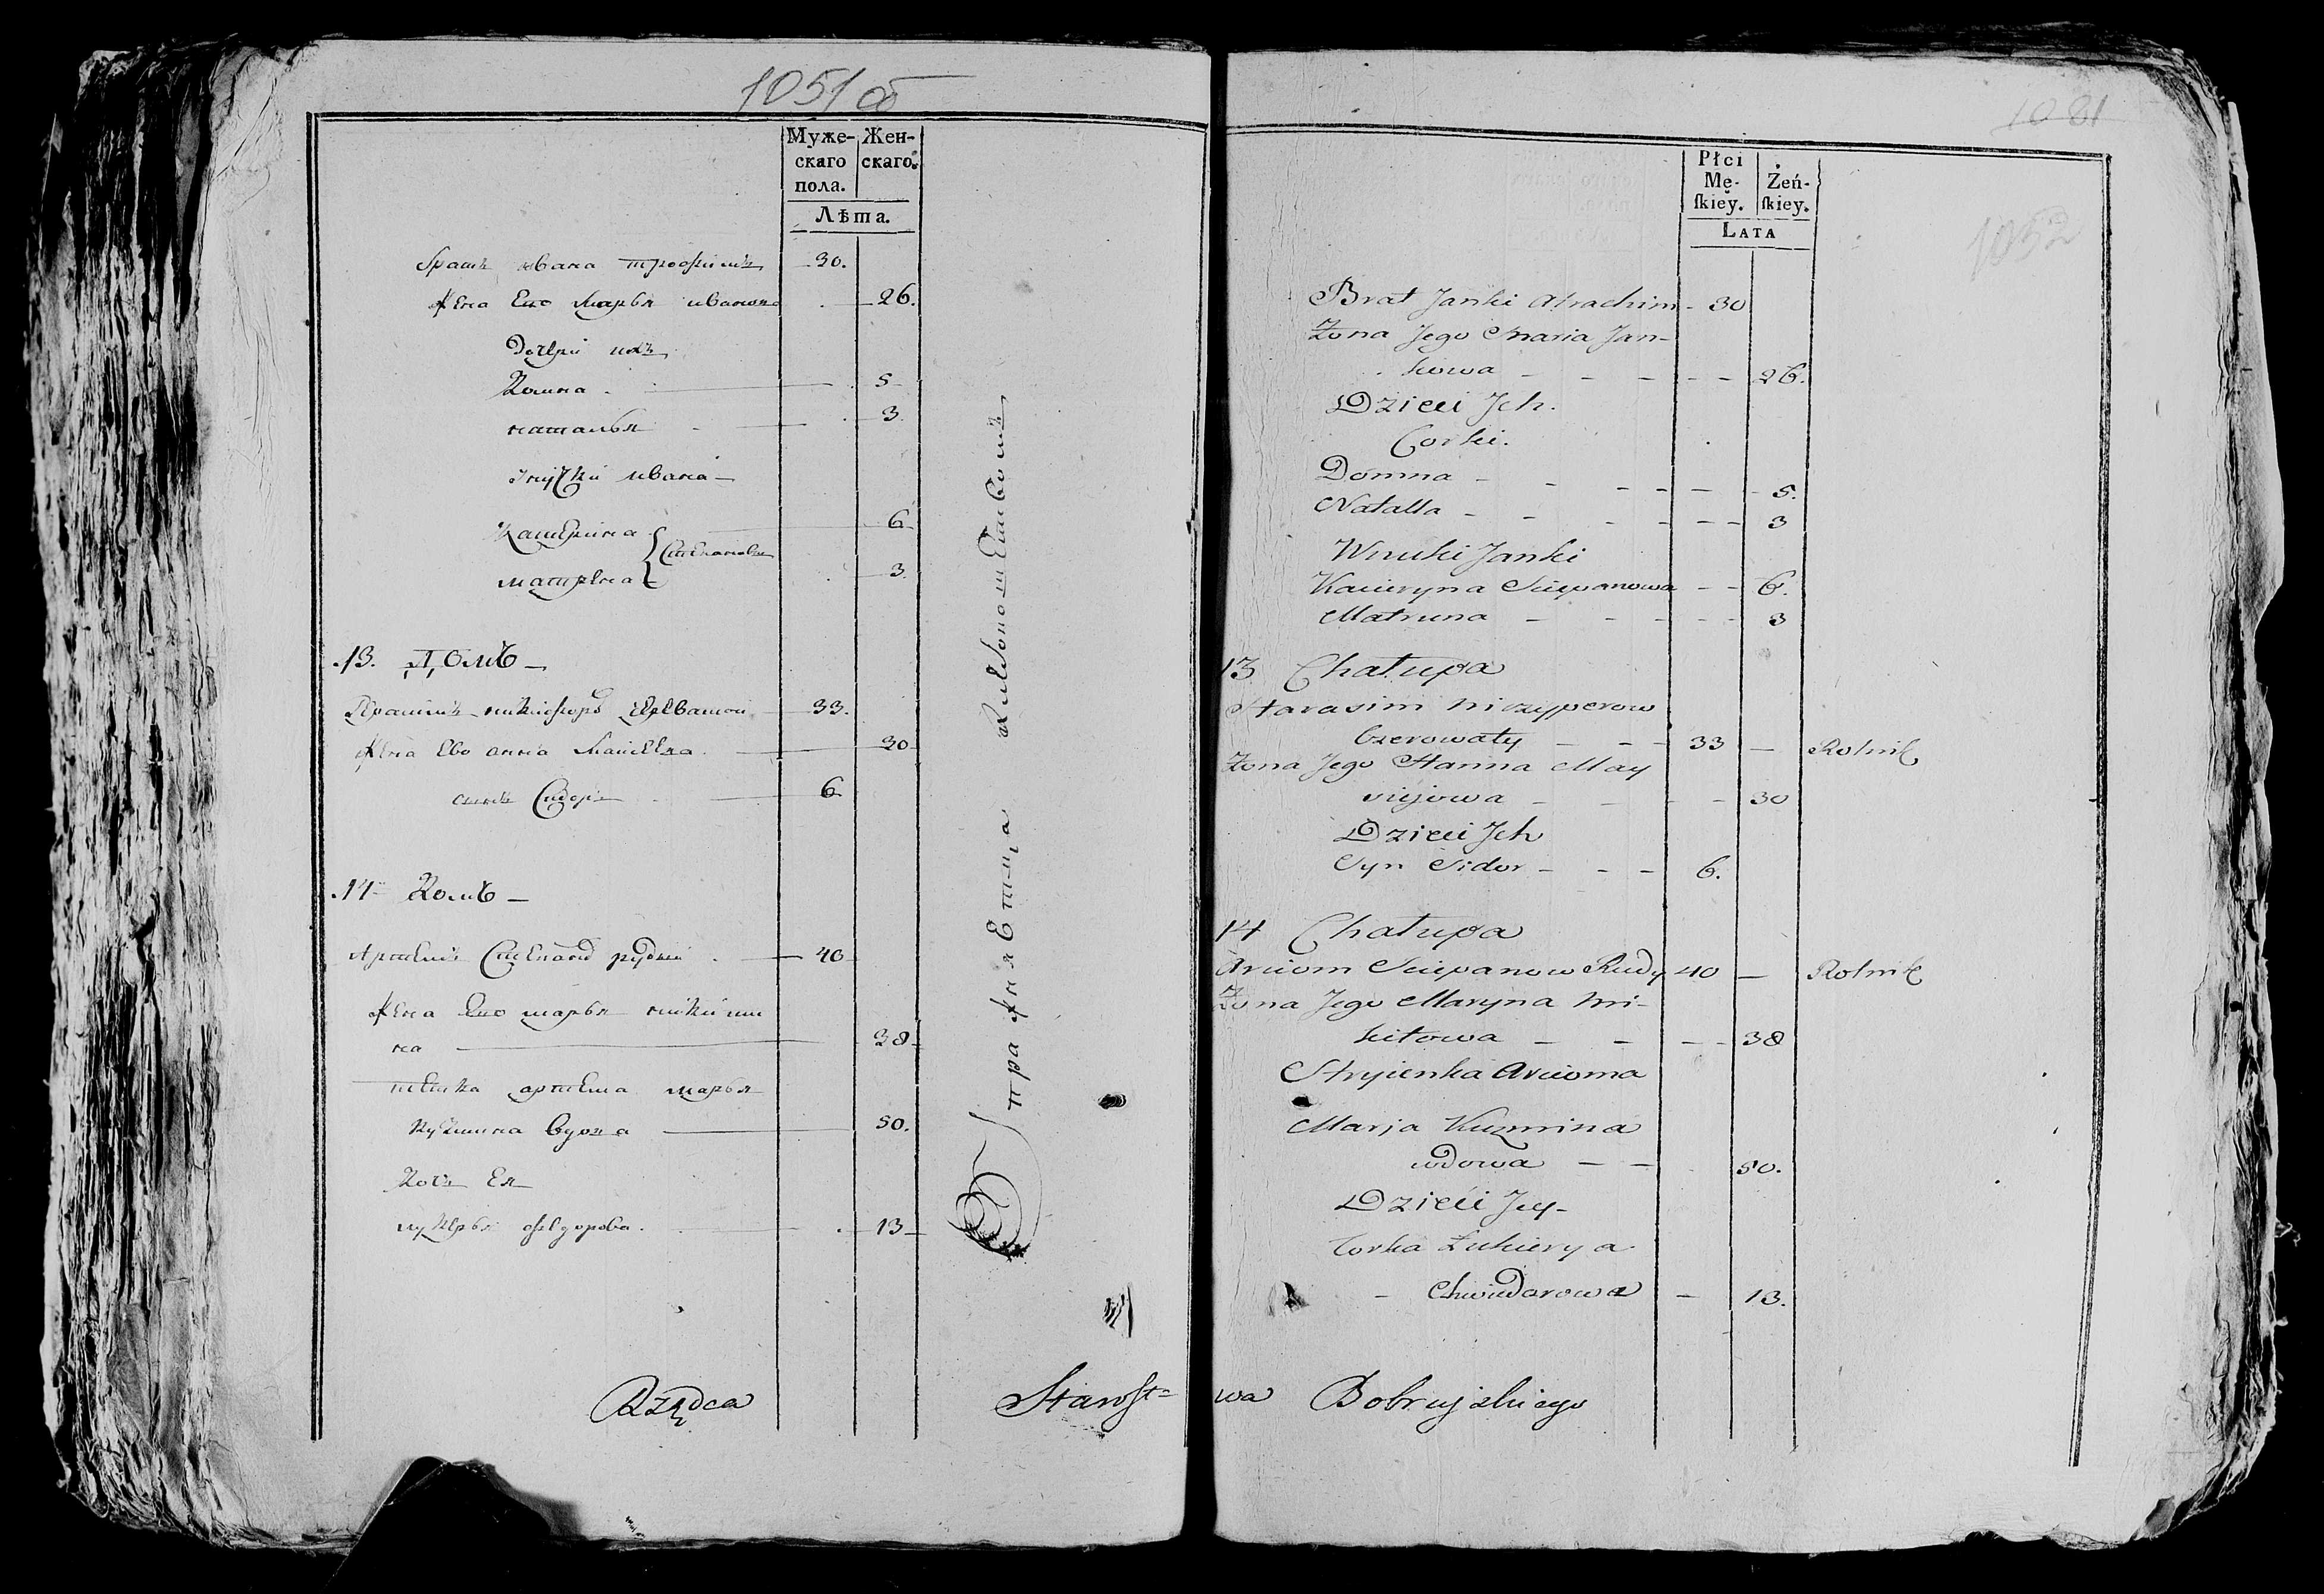 1051 об
Муже-
скаго
пола.
Жен-
скаго.
Лѣта.
братъ ивана трофимъ 30.
жена Его Марья иванова 26.
Дочери ихъ
Домна 5
наталья 3
внучки ивана
Катерина 6
Степановы
матрена 3
13. Домъ
никифоръ
33.
жена Ево анна 30
сынъ Сидоръ 6
14 Домъ
Артемъ Степановъ рудый 40
жена Ево марья никити
на 38
тетка артема марья
кузмина вдова 50.
Дочь Ея
лукерья федорова. 13
Rządca Starost=
1081
1052
Płci
Mę-
ſkiey.
Żeń-
ſkiey.
LATA
Brat Janki Atrachim - 30
Żona Jego Maria Jan-
kowa - - - - - 26.
Dzieci Jch.
Corki.
Domna - - - - - - 5.
Natalla - - - - - - 3
Wnuki Janki
Kacieryna Sciepanowa - - 6.
Matruna - - - - - 3
13 Chałupa
Harasim Niczyperow
Czerowaty - - - 33 - Rolnik
Żona Jego Hanna May
siejowa - - - - 30
Dzieci Jch
Syn Sidor - - - 6.
14 Chałupa
Arciom Sciepanow Rudy 40 - Rolnik
Żona Jego Maryna Mi-
kitowa - - - - 38
Stryienka Arcioma
Marja Kuzmina
wdowa - - 50.
Dzieći Jey-
Corka Łukierya
- Chwiedarowa - 13.
wa Bobruyskiego